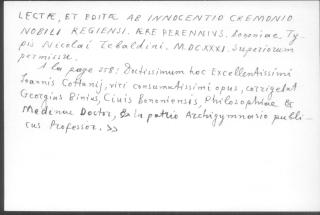 LECTÆ, ET EDITÆ AB INNOCENTIO CREMONIO
NOBILI REGIENSI. ÆRE PERENNIUS. Bononiae, Ty-
pis Nicolai Tebaldini. MDCXXXI. Superiorum
permissu.
A la page 258: Doctissimum hoc Excellentissimi
Ioannis Cottunij, viri consumatissimi opus, corrigebat
Georgius Binius, Civis Bononiensis, Philosophiae &
Medicinae Doctor, & in patrio Archigymnasio publi-
cus Professor. >>